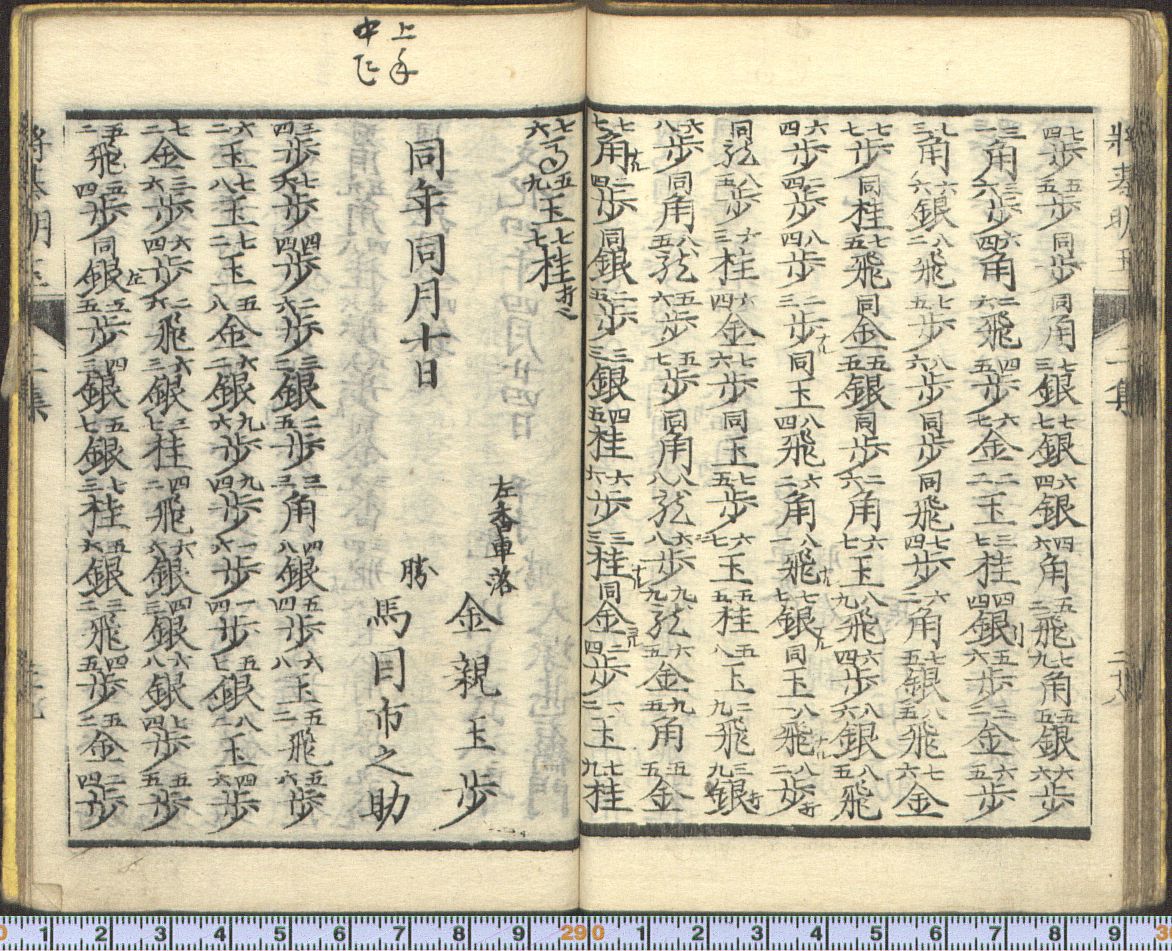 将棊明玉 二集 二十八
七四歩 五五歩 同歩 同角 七三銀 七七銀 六四銀 四六角 五二飛 七九角 五五銀 六六歩
三一角 三六歩 六四角 二六飛 四五歩 六七金 二二玉 三七桂 四四銀引 五六歩 三二金 六五歩
七三角 六六銀 八二飛 七五歩 八六歩 同歩 同飛 七四歩 六二角 七五銀 八五飛 七六金
七七歩 同桂 七五飛 同金 五五銀 同歩 二六角 六七玉 八九飛 六四歩 八六銀 八五飛
六四歩 三四歩 八四歩 二三歩ナル 同玉 八四飛 六二角 八一飛ナル 七七銀ナル 同玉 八一飛ナル 八二歩打
同龍 八五歩 六三桂 六四金 七六歩 同玉 七五歩 六七玉 五五桂 五八玉 二九飛 三九銀打
六八歩 同角 八五龍 五六歩 五七歩 同角 八八龍 八八歩 九九龍 六五金 九五角 五五金
七七角ナル 二四歩 同銀 二五歩 三三銀 四五桂 六六歩 三三桂ナル 同金 二四歩 一二玉 七九桂
五九玉 七七桂打之
同年同月十日
左香車落 金親玉歩
勝 馬目市之助
三四歩 七六歩 四四歩 二六歩 三三銀 二五歩 三三角 四八銀 五四歩 六八玉 五二飛 五六歩
六二玉 七八玉 七二玉 五八金 六二銀 九六歩 九四歩 一六歩 一四歩 五七銀 八二玉 四六歩
七二金 三六歩 六四歩 二六飛 六三銀 三七桂 四二飛 六六銀 四三銀 六八銀 七四歩 五五歩
五二飛 五四歩 同銀左 五五歩 四三銀 五七銀 七三桂 五六銀 三二飛 四五歩 五二金 二四歩
上手
中飛